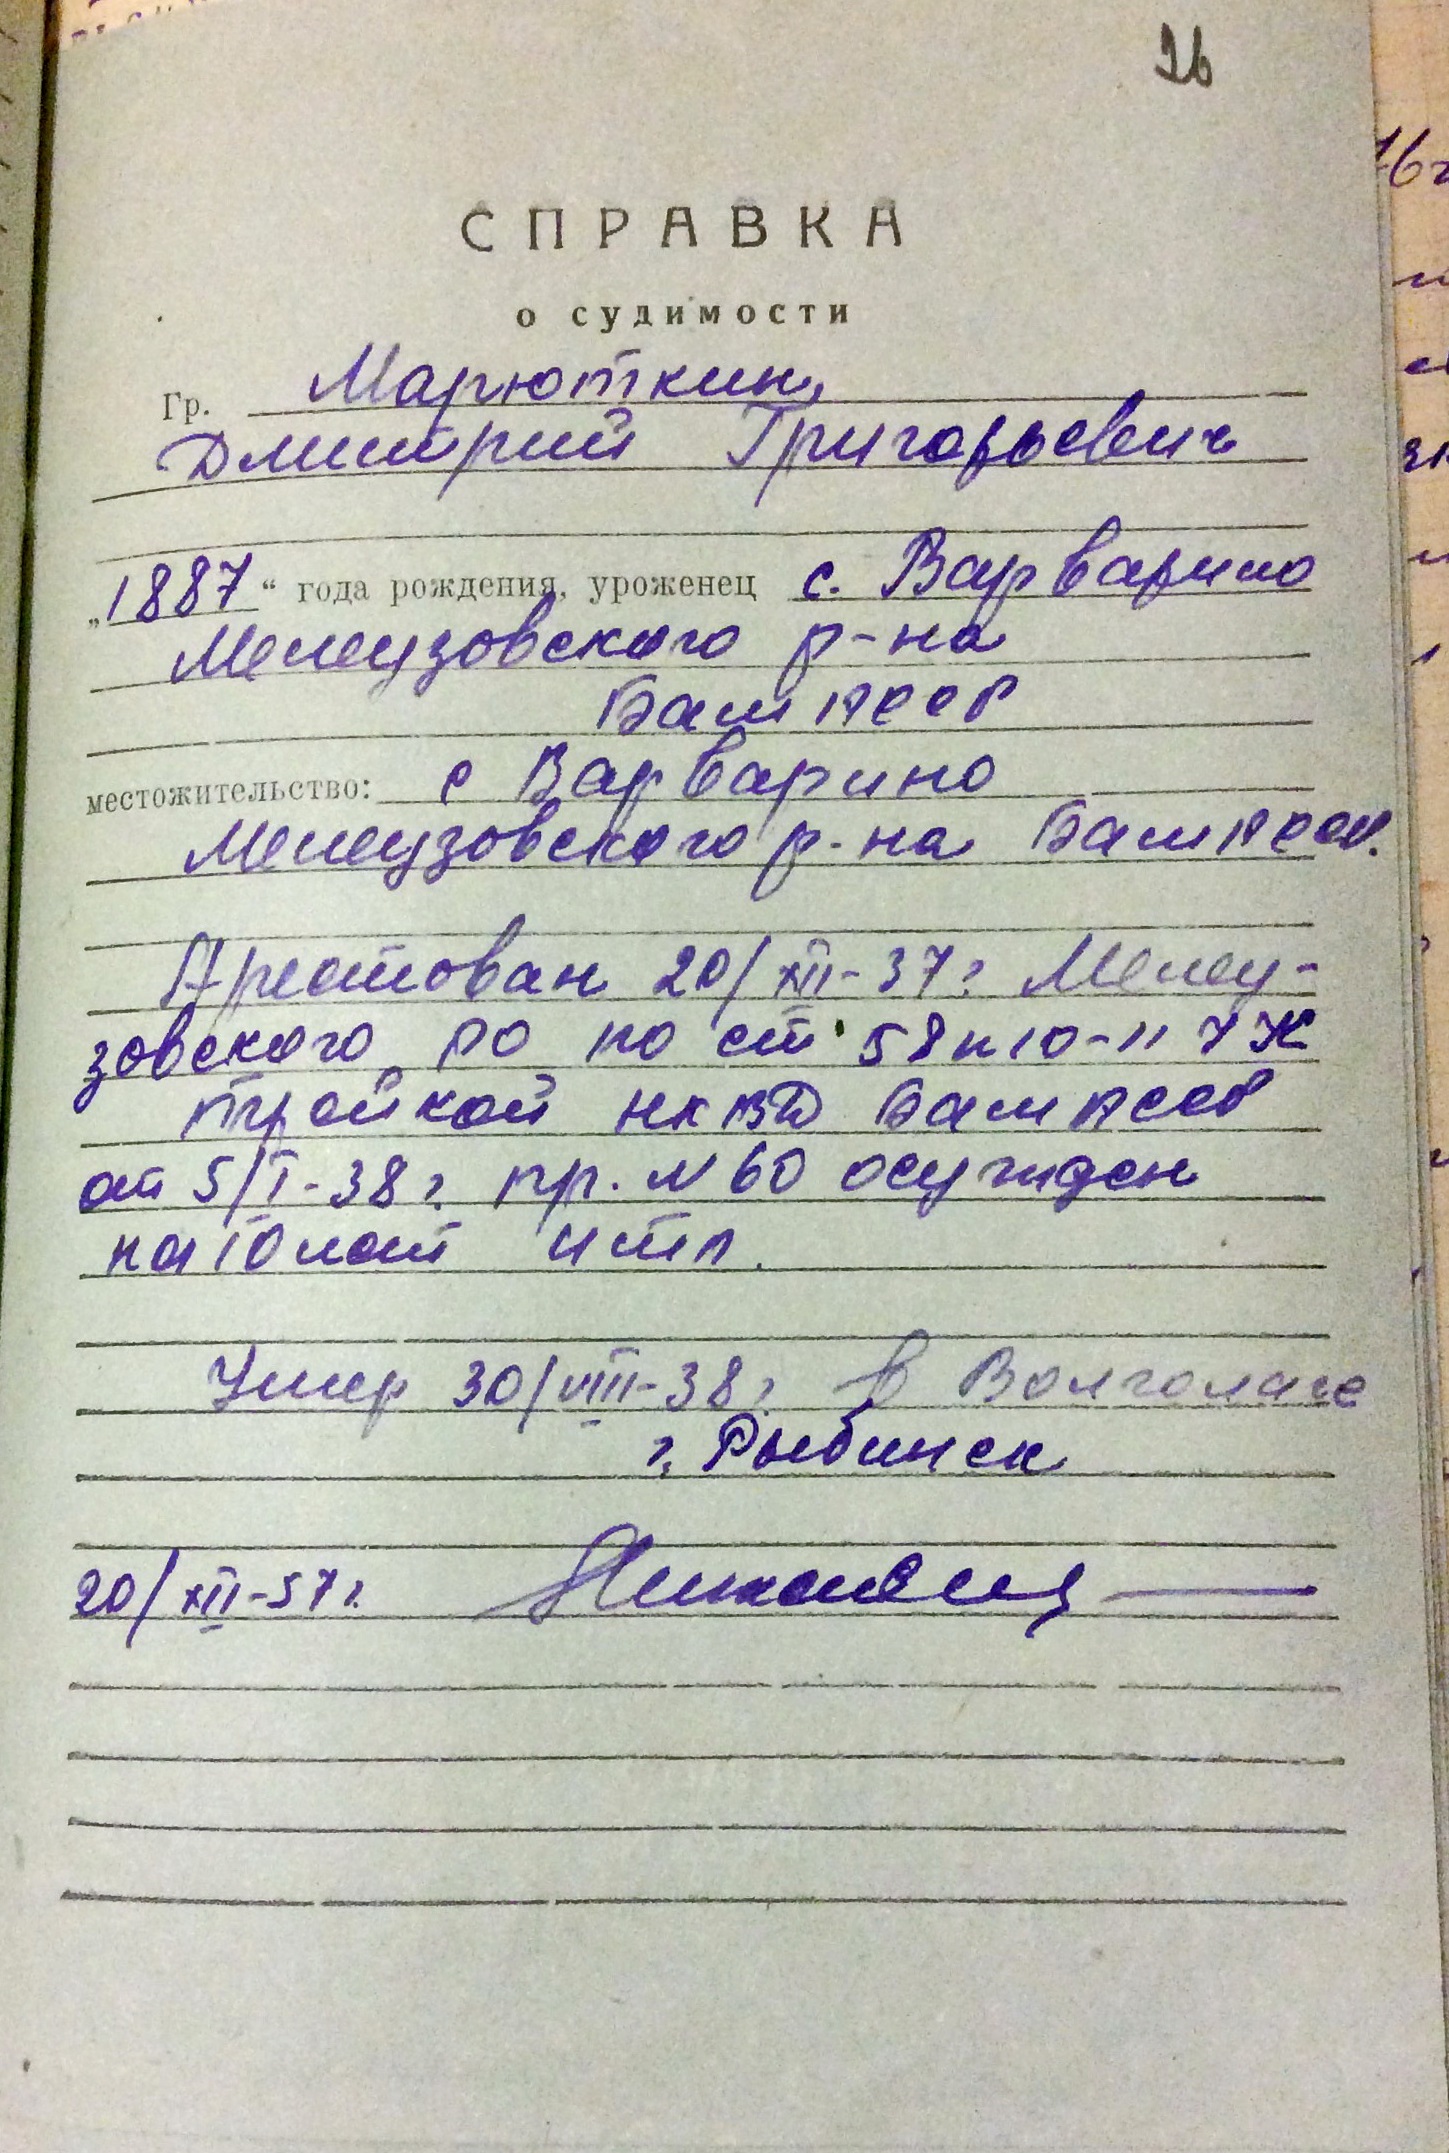 26
СПРАВКА
о судимости
Гр. Марюткин,
Дмитрий Григорьевич
„1887“ года рождения, уроженец с. Варварино
Мелеузовского р-на
Баш АССР
местожительство: с Варварино
Мелеузовского р-на Баш АССР.
Арестован 20/XII-37г. Мелеу-
зовского РО по ст. 58 п 10-11 УК
тройкой НКВД Баш АССР
от 5/I-38г. пр. N 60 осужден
на 10 лет ИТЛ.
Умер 30/VIII-38г. в Волголаге
г. Рыбинск
20/XII-57г.